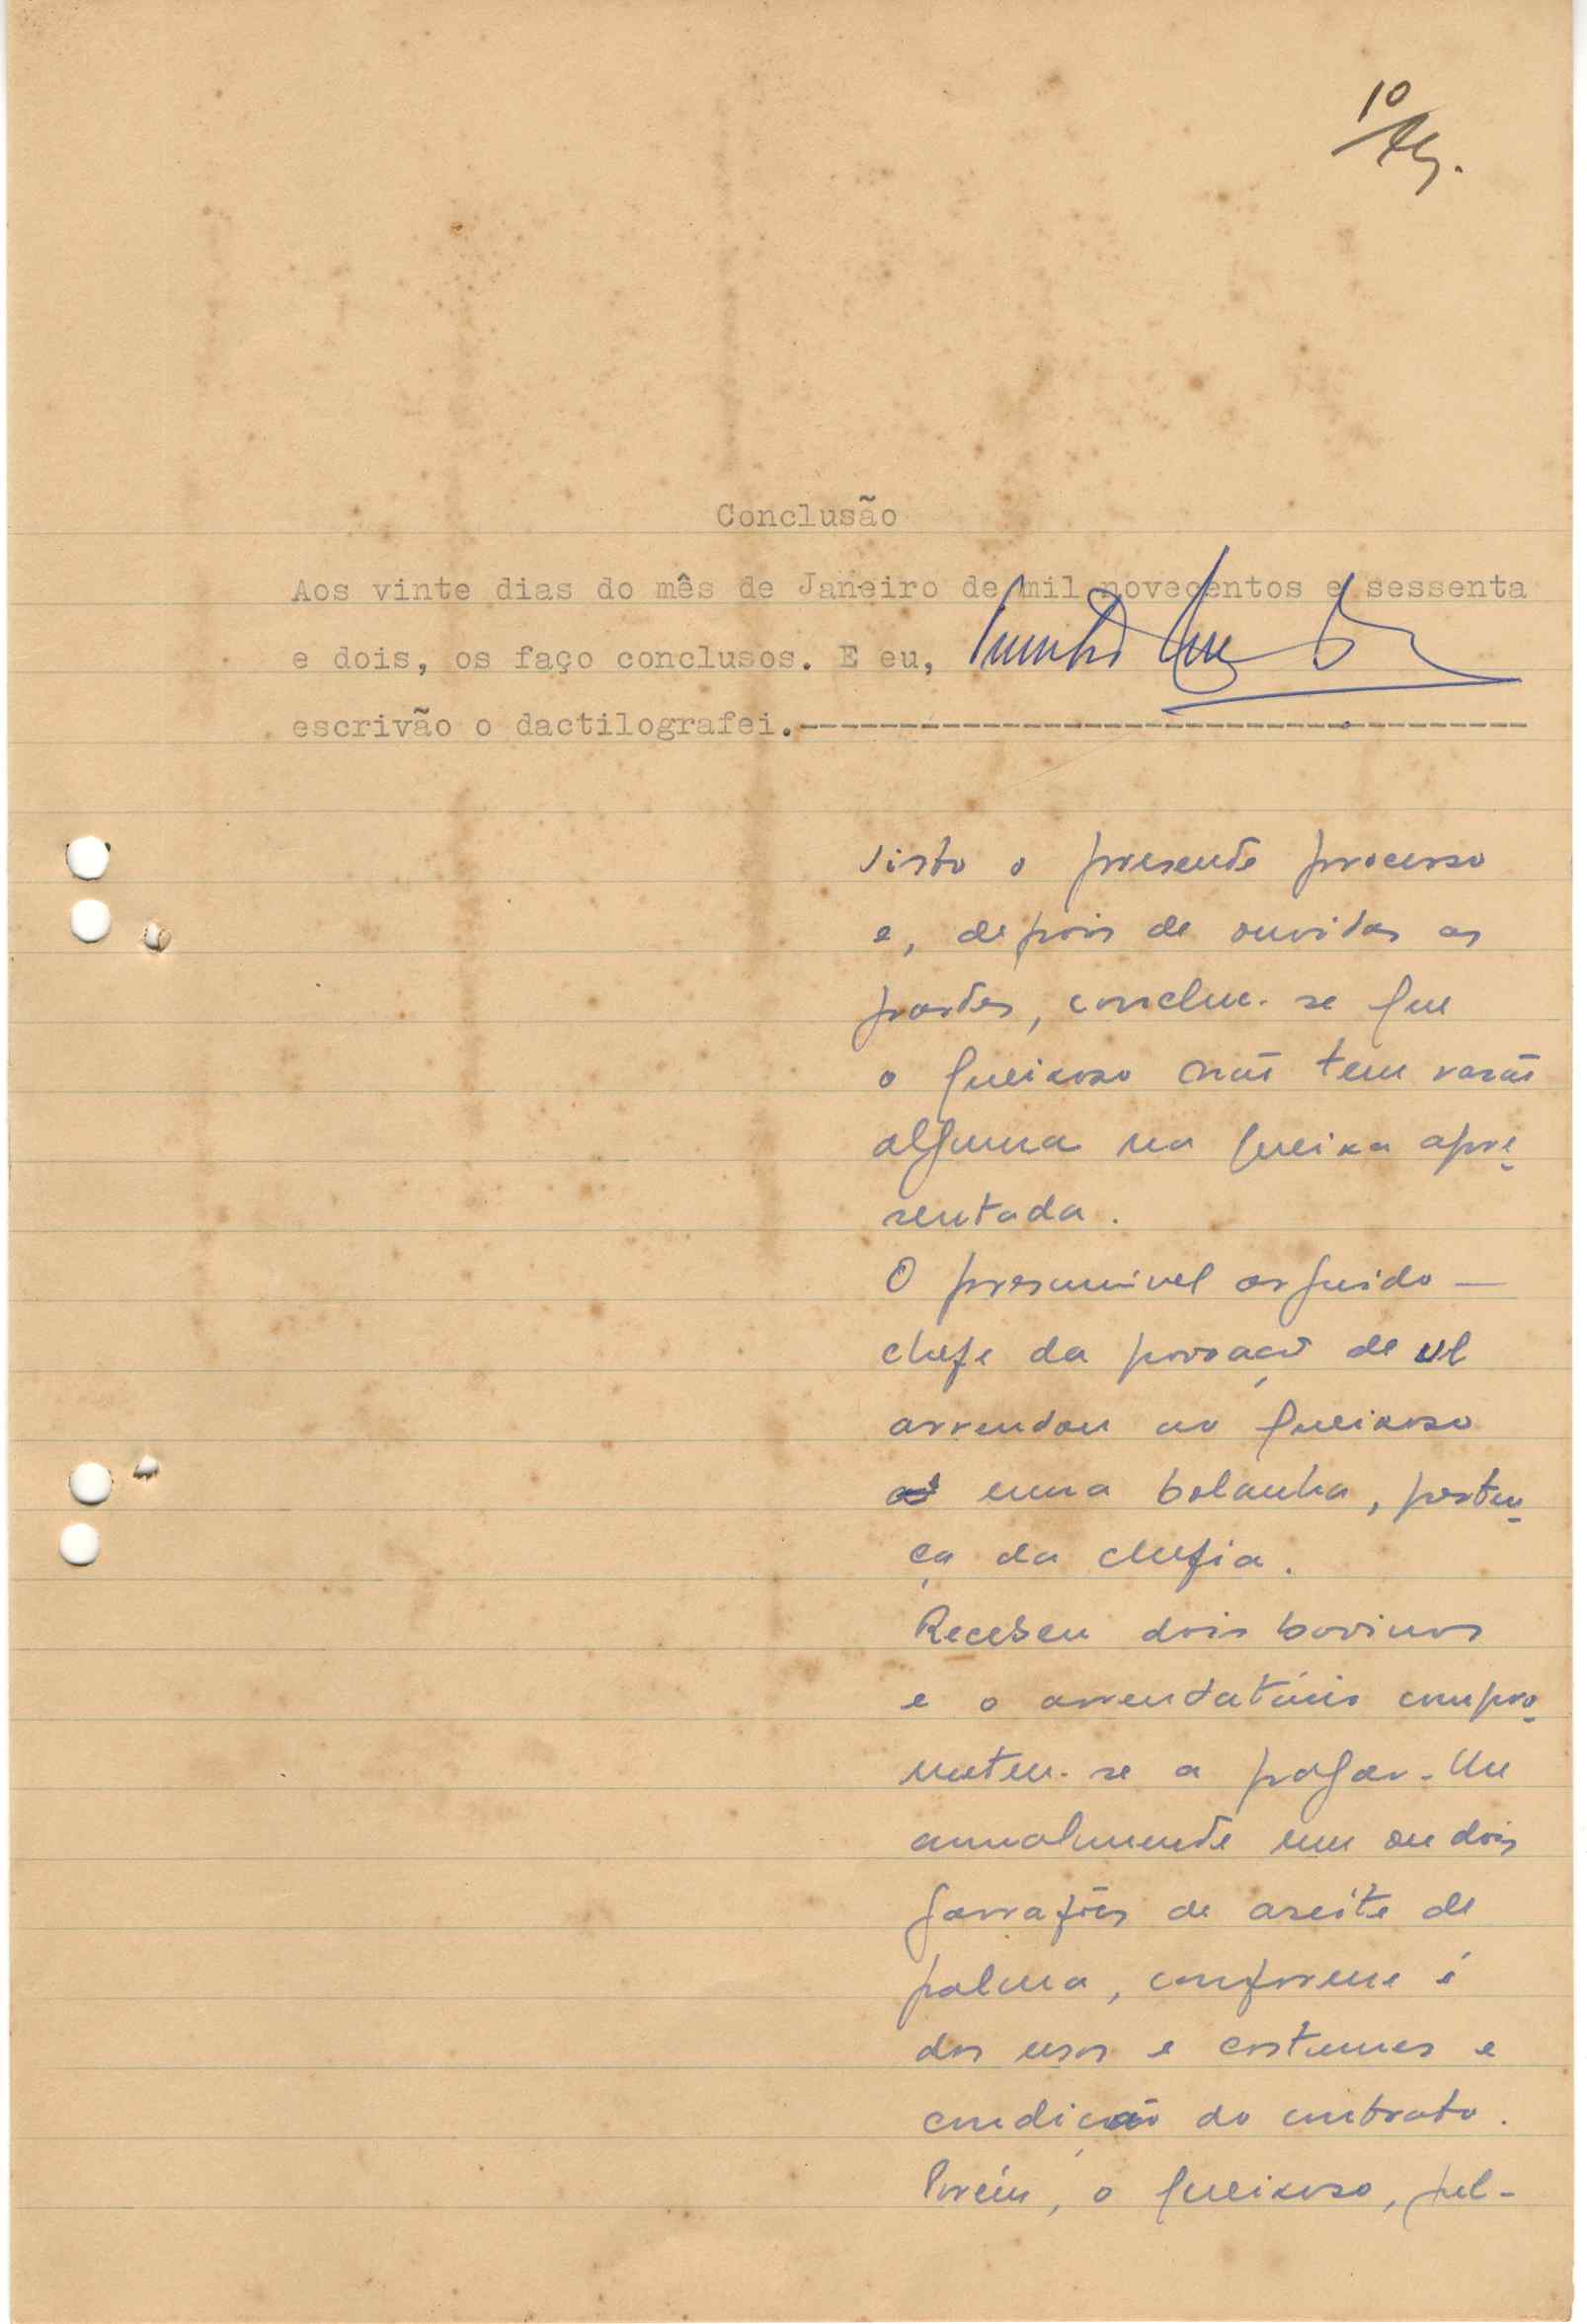 10
Conclusão
Aos vinte dias do mês de Janeiro de mil novecentos e sessenta
e dois, os faço conclusos. E eu,
escrivão o dactilografei.-------------------------------------
Visto o presente processo
e, depois de ouvidas as
partes, conclue-se que
o queixoso não tem razão
alguma na queixa apre-
sentada.
O presumível arguido —
chefe da povoação de Ul
arrendou ao queixoso
uma bolanha, perten-
ça da chefia.
Recebeu dois bovinos
e o arrendatário compro-
meteu-se a pagar-lhe
anualmente um ou dois
garrafões de azeite de
palma, conforme é
dos usos e costumes e
condição do contrato.
Porém, o queixoso, jul-